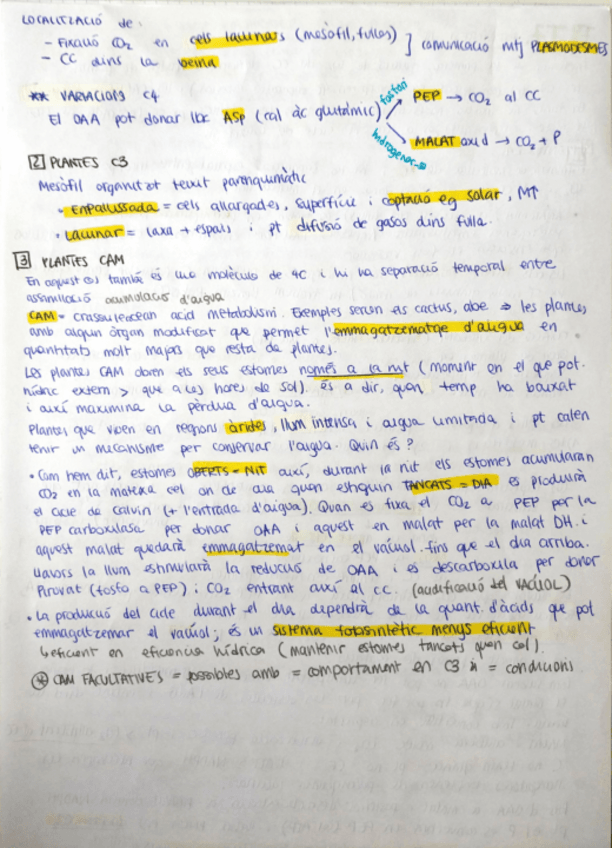 LOCALITZACIÓ de:
- Fixació CO2 en cels lacunars (mesòfil, fulles) ] comunicació mtj PLASMODESMES
- CC dins la beina
** VARIACIONS C4
El OAA pot donar lloc Asp (cal àc glutàmic)
fosfori PEP → CO2 al CC
hidrogenac. MALAT oxid → CO2 + P
2 PLANTES C3
Mesòfil organitzat teixit parenquimàtic
• Enpallissada = cels allargades, superfície i captació eg solar, M↑
• Lacunar = laxa + espais i pt difusió de gasos dins fulla.
3 PLANTES CAM
En aquest cas també és una molècula de 4C i hi ha separació temporal entre
assimilació acumulació d'aigua
CAM = crassulacean acid metabolism. Exemples serien els cactus, aloe ⇒ les plantes
amb algun òrgan modificat que permet l'emmagatzematge d'aigua en
quantitats molt majors que resta de plantes.
Les plantes CAM obren els seus estomes només a la nit (moment en el que pot.
hídric extern > que a les hores de sol). És a dir, quan temp ha baixat
i així maximina la pèrdua d'aigua.
Plantes que viuen en regions àrides, llum intensa i aigua limitada i pt calen
tenir un mecanisme per conservar l'aigua. Quin és?
• Com hem dit, estomes OBERTS = NIT així, durant la nit els estomes acumularan
CO2 en la mateixa cel on de dia quan estiguin TANCATS = DIA es produirà
el cicle de calvin (+ l'entrada d'aigua). Quan es fixa el CO2 a PEP per la
PEP carboxilasa per donar OAA i aquest en malat per la malat DH. i
aquest malat quedarà emmagatzemat en el vacúol. fins que el dia arriba.
Llavors la llum estimularà la reducció de OAA i es descarboxila per donar
Pirovat (fosfo a PEP) i CO2 entrant així al CC. (acidificació del VACÚOL)
• La producció del cicle durant el dia dependrà de la quant. d'àcids que pot
emmagatzemar el vacúol; és un sistema fotosintètic menys eficient
↳ eficient en eficiencia hídrica (mantenir estomes tancats quan cal).
* CAM FACULTATIVES = possibles amb = comportament en C3 = condicions